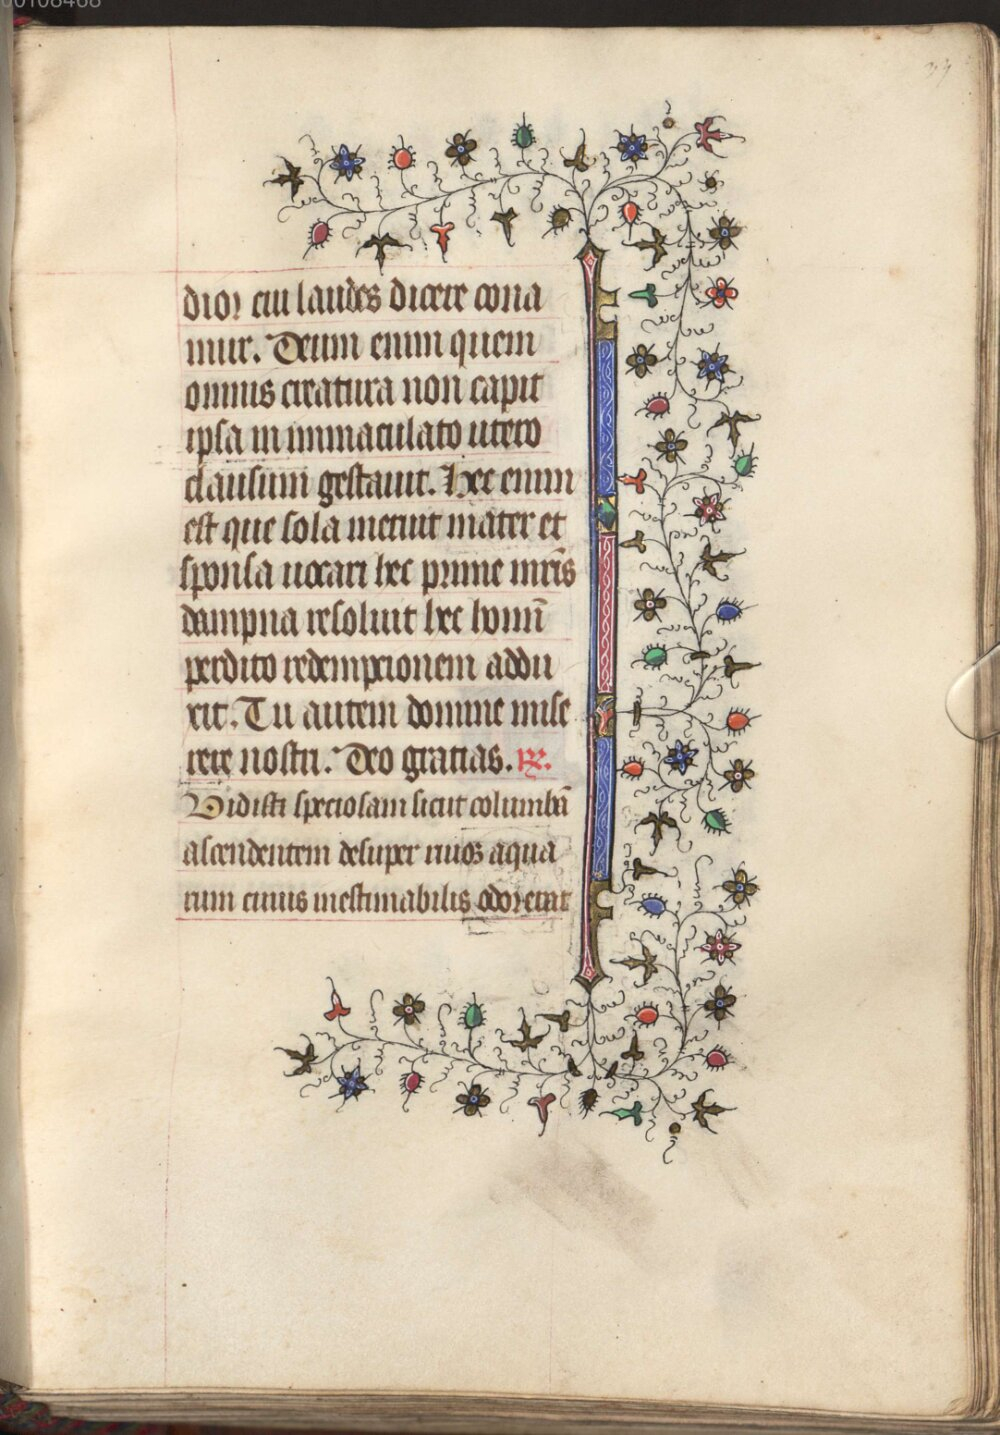 00108468
dior eiu laudes dicere cona
mur. Deum enim quem
omnis creatura non capit
ipsa in immaculato utero
clausum gestauit. Hec enim
est que sola meruit mater et
sponsa uocari hec prime mr̄is
dampna resoluit hec homī
perdito redempcionem addu
xit. Tu autem domine mise
rere nostri. Deo gratias. R̷.
Vidisti speciosam sicut columbā
ascendentem desuper riuos aqua
rum cuius inestimabilis odor erat